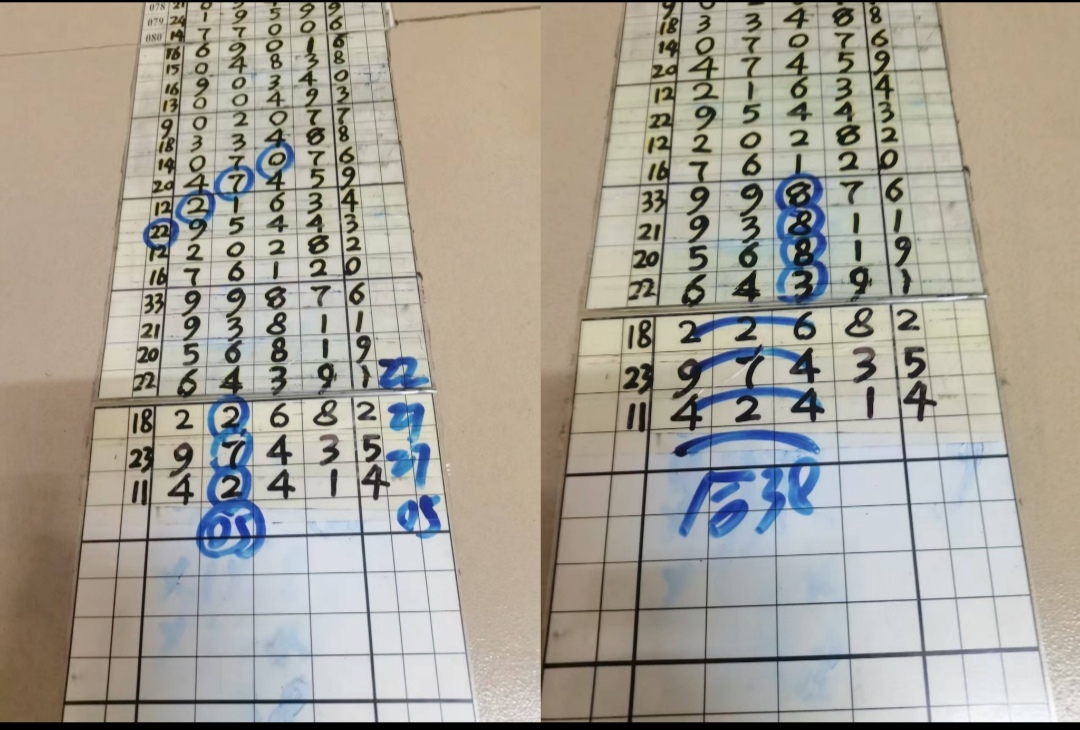 079 24 1 9 5 9 9
080 14 7 7 0 0 6
16 6 9 0 1 6
15 0 4 8 3 8
16 9 0 3 4 0
13 0 0 4 9 3
9 0 2 0 7 7
18 3 3 4 8 8
14 0 7 0 7 6
20 4 7 4 5 9
12 2 1 6 3 4
22 9 5 4 4 3
12 2 0 2 8 2
16 7 6 1 2 0
33 9 9 8 7 6
21 9 3 8 1 1
20 5 6 8 1 9
22 6 4 3 9 1 22
18 2 2 6 8 2 27
23 9 7 4 3 5 27
11 4 2 4 1 4
05 05
18 3 3 4 8 8
14 0 7 0 7 6
20 4 7 4 5 9
12 2 1 6 3 4
22 9 5 4 4 3
12 2 0 2 8 2
16 7 6 1 2 0
33 9 9 8 7 6
21 9 3 8 1 1
20 5 6 8 1 9
22 6 4 3 9 1
18 2 2 6 8 2
23 9 7 4 3 5
11 4 2 4 1 4
后38